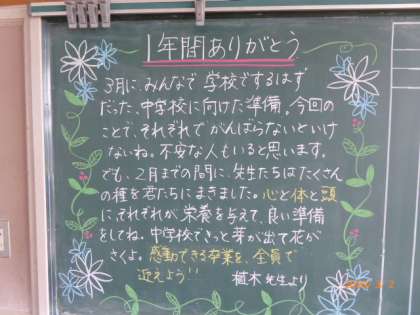 1年間ありがとう
3月に、みんなで学校でするはず
だった、中学校に向けた準備。今回の
ことで、それぞれでがんばらないといけ
ないね。不安な人もいると思います。
でも、2月までの間に、先生たちはたくさん
の種を君たちにまきました。心と体と頭
に、それぞれが栄養を与えて、良い準備
をしてね。中学校できっと芽が出て花が
さくよ。感動できる卒業を、全員で
迎えよう!!
植木先生より